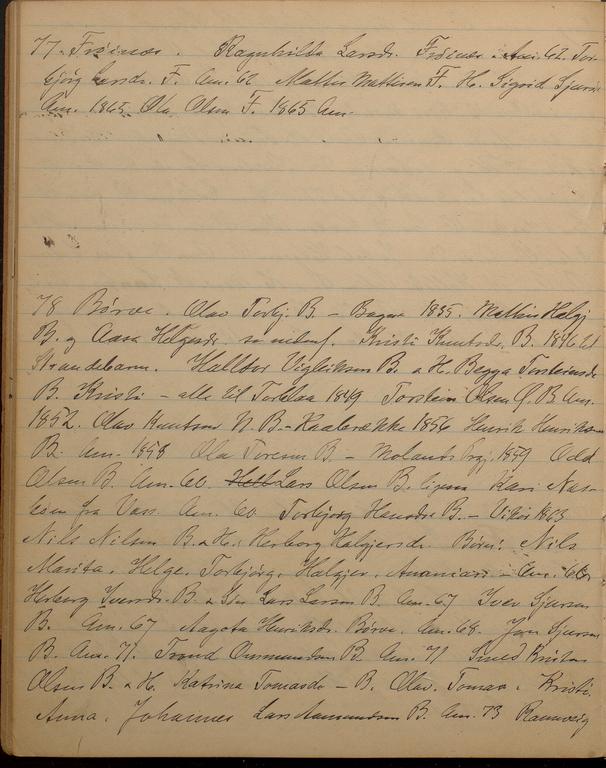 77. Freinæs. Ragnhilda Larsd. Freinæs. Am. 62. Tor-
bjørg Larsda. F. Am. 62 Mattis Mattisen F. H. Sigrid Sjurs.
Am. 1865 Ola Olsen F. 1865 Am.
78 Børve. Olav Torbj. B. – 1835. Mattis Helgj
B. og Aasa Helgesdr. Kristi Knutsd. B. 1846 til
Strandebarm. Halldor Vigleiksen B. & H. Begga Torsteinsd.
B. Kristi – alle til 1849 Torstein Olsen B. Am.
1852. Olav Knutson N. B. – Kaabrække 1856 Henrik Henriksen
B. Am. 1858 Ola Toresen B – 1859 Odd
Olsen B. Am. 60. Lars Olsen B. Kari Næs-
heim fra Vass Am. 60 Torbjørg Hansdr B. – Vikør 1863
Nils Nilsen B. & H. Herborg Halgjersd. Børn: Nils
Marita, Helge, Torbjørg, Halgjer, – Am. 66
Herborg Iversd. B. & Lars Larsen B. Am. 67 Iver Sjursen
B. Am. 67 Aagota Henriksd. Børve. Am. 68. Sjursen
B. Am. 71. Trond Omundsen B. Am. 71 Smed Kristen
Olsen B. & H. Katrina Tomasd. – B. Olav. Tomas. Kristi.
Anna. Johannes Lars Aamundsen B. Am. 73 Rannveig